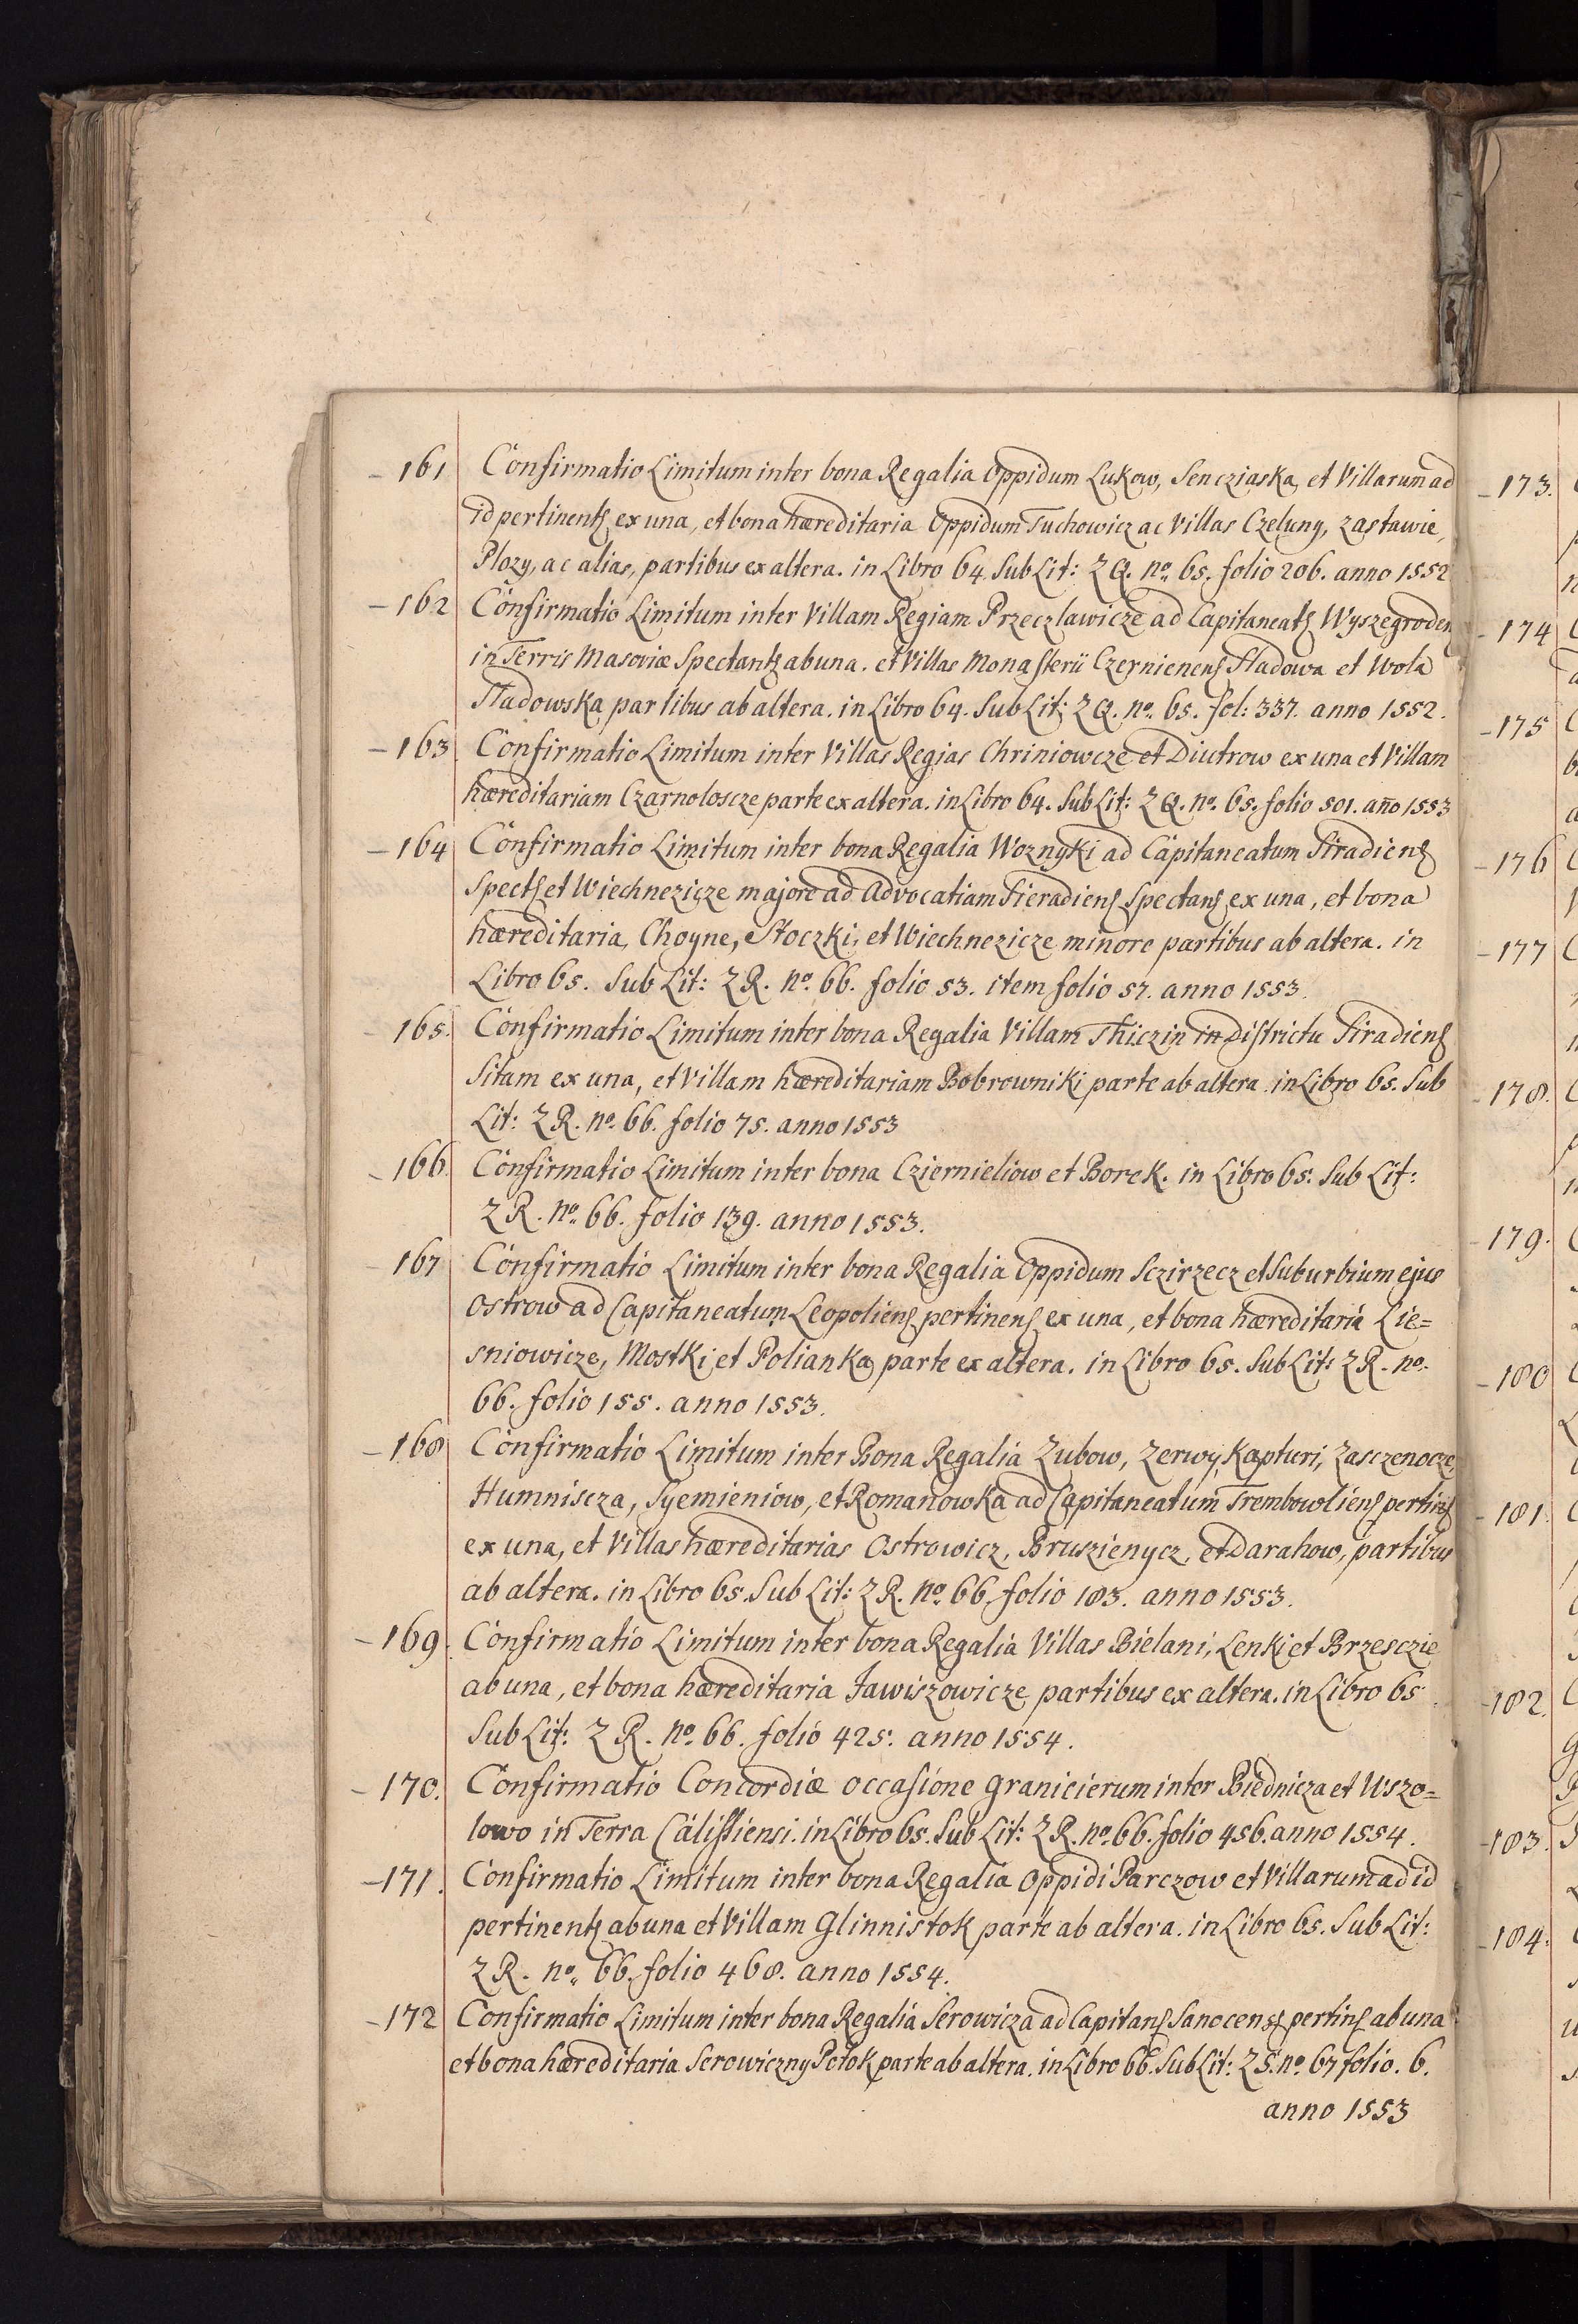 161 Confirmatio Limitum inter bona Regalia Oppidum Lukow, Sencziaska, et Villarum ad
id pertinentȝ ex una, et bona hæreditaria Oppidum Tuchowicz ac Villas Czeluny, Zastawie,
Plozy, ac alias, partibus ex altera. in Libro 64. Sub Lit: ZQ. no. 65. folio 206. anno 1552
162 Confirmatio Limitum inter Villam Regiam Przeczlawicze ad Capitaneatȝ Wyszegroden
in Terris Masoviæ Spectantȝ ab una. et Villas Monasterii Czernienensȝ Sladowa et Wola
Sladowska partibus ab altera. in Libro 64. Sub Lit: ZQ. no. 65. fol: 337. anno 1552.
163 Confirmatio Limitum inter Villas Regias Chriniowcze et Diutrow ex una et Villam
hæreditariam Czarnoloscze parte ex altera. in Libro 64. Sub Lit: ZQ. no. 65. folio 501. año 1553
164 Confirmatio Limitum inter bona Regalia Woznyki ad Capitaneatum Siradiensȝ
Spectȝ et Wiechnezicze majore ad Advocatiam Sieradiensȝ Spectansȝ ex una, et bona
hæreditaria, Choyne, Stoczki, et Wiechnezicze minore partibus ab altera. in
Libro 65. Sub Lit: ZR. no. 66. folio 53. item folio 57. anno 1553.
165. Confirmatio Limitum inter bona Regalia Villam Thiczin in Districtu Siradiensȝ
Sitam ex una, et Villam hæreditariam Bobrowniki parte ab altera. in Libro 65. Sub
Lit: ZR. no. 66. folio 75. anno 1553
166. Confirmatio Limitum inter bona Cziernieliow et Borek. in Libro 65. Sub Lit:
ZR. no. 66. folio 139. anno 1553.
167 Confirmatio Limitum inter bona Regalia Oppidum Sczirzecz et Suburbium ejus
Ostrow ad Capitaneatum Leopoliensȝ pertinensȝ ex una, et bona hæreditaria Lie=
sniowicze, Mostki, et Polianka, parte ex altera. in Libro 65. Sub Lit: ZR. no.
66. folio 155. anno 1553.
168 Confirmatio Limitum inter Bona Regalia Zubow, Zerwy, Kapturi, Zasczenocze,
Humniscza, Syemieniow, et Romanowka ad Capitaneatum Trembowliensȝ pertinȝ
ex una, et Villas hæreditarias Ostrowicz, Bruszienycz, et Darahow, partibus
ab altera. in Libro 65. Sub Lit: ZR. no. 66. folio 183. anno 1553.
169. Confirmatio Limitum inter bona Regalia Villas Bielani, Lenki et Brzesczie
ab una, et bona hæreditaria Jawiszowicze partibus ex altera. in Libro 65
Sub Lit: ZR. no. 66. folio 425. anno 1554.
170. Confirmatio Concordiæ occasione granicierum inter Biednicza et Wszo=
lowo in Terra Calissiensi. in Libro 65. Sub Lit: ZR. no. 66. folio 456. anno 1554.
171. Confirmatio Limitum inter bona Regalia Oppidi Parczow et Villarum ad id
pertinentȝ ab una et Villam Glinnistok parte ab altera. in Libro 65. Sub Lit:
ZR. no. 66. folio 468. anno 1554.
172 Confirmatio Limitum inter bona Regalia Serowicza ad Capitanȝ Sanocensȝ pertinȝ ab una
et bona hæreditaria Serowiczny Potok parte ab altera. in Libro 66. Sub Lit: ZS. no. 67 folio. 6.
anno 1553
173.
174
175
176
177
178.
179.
180
181.
182.
183.
184.